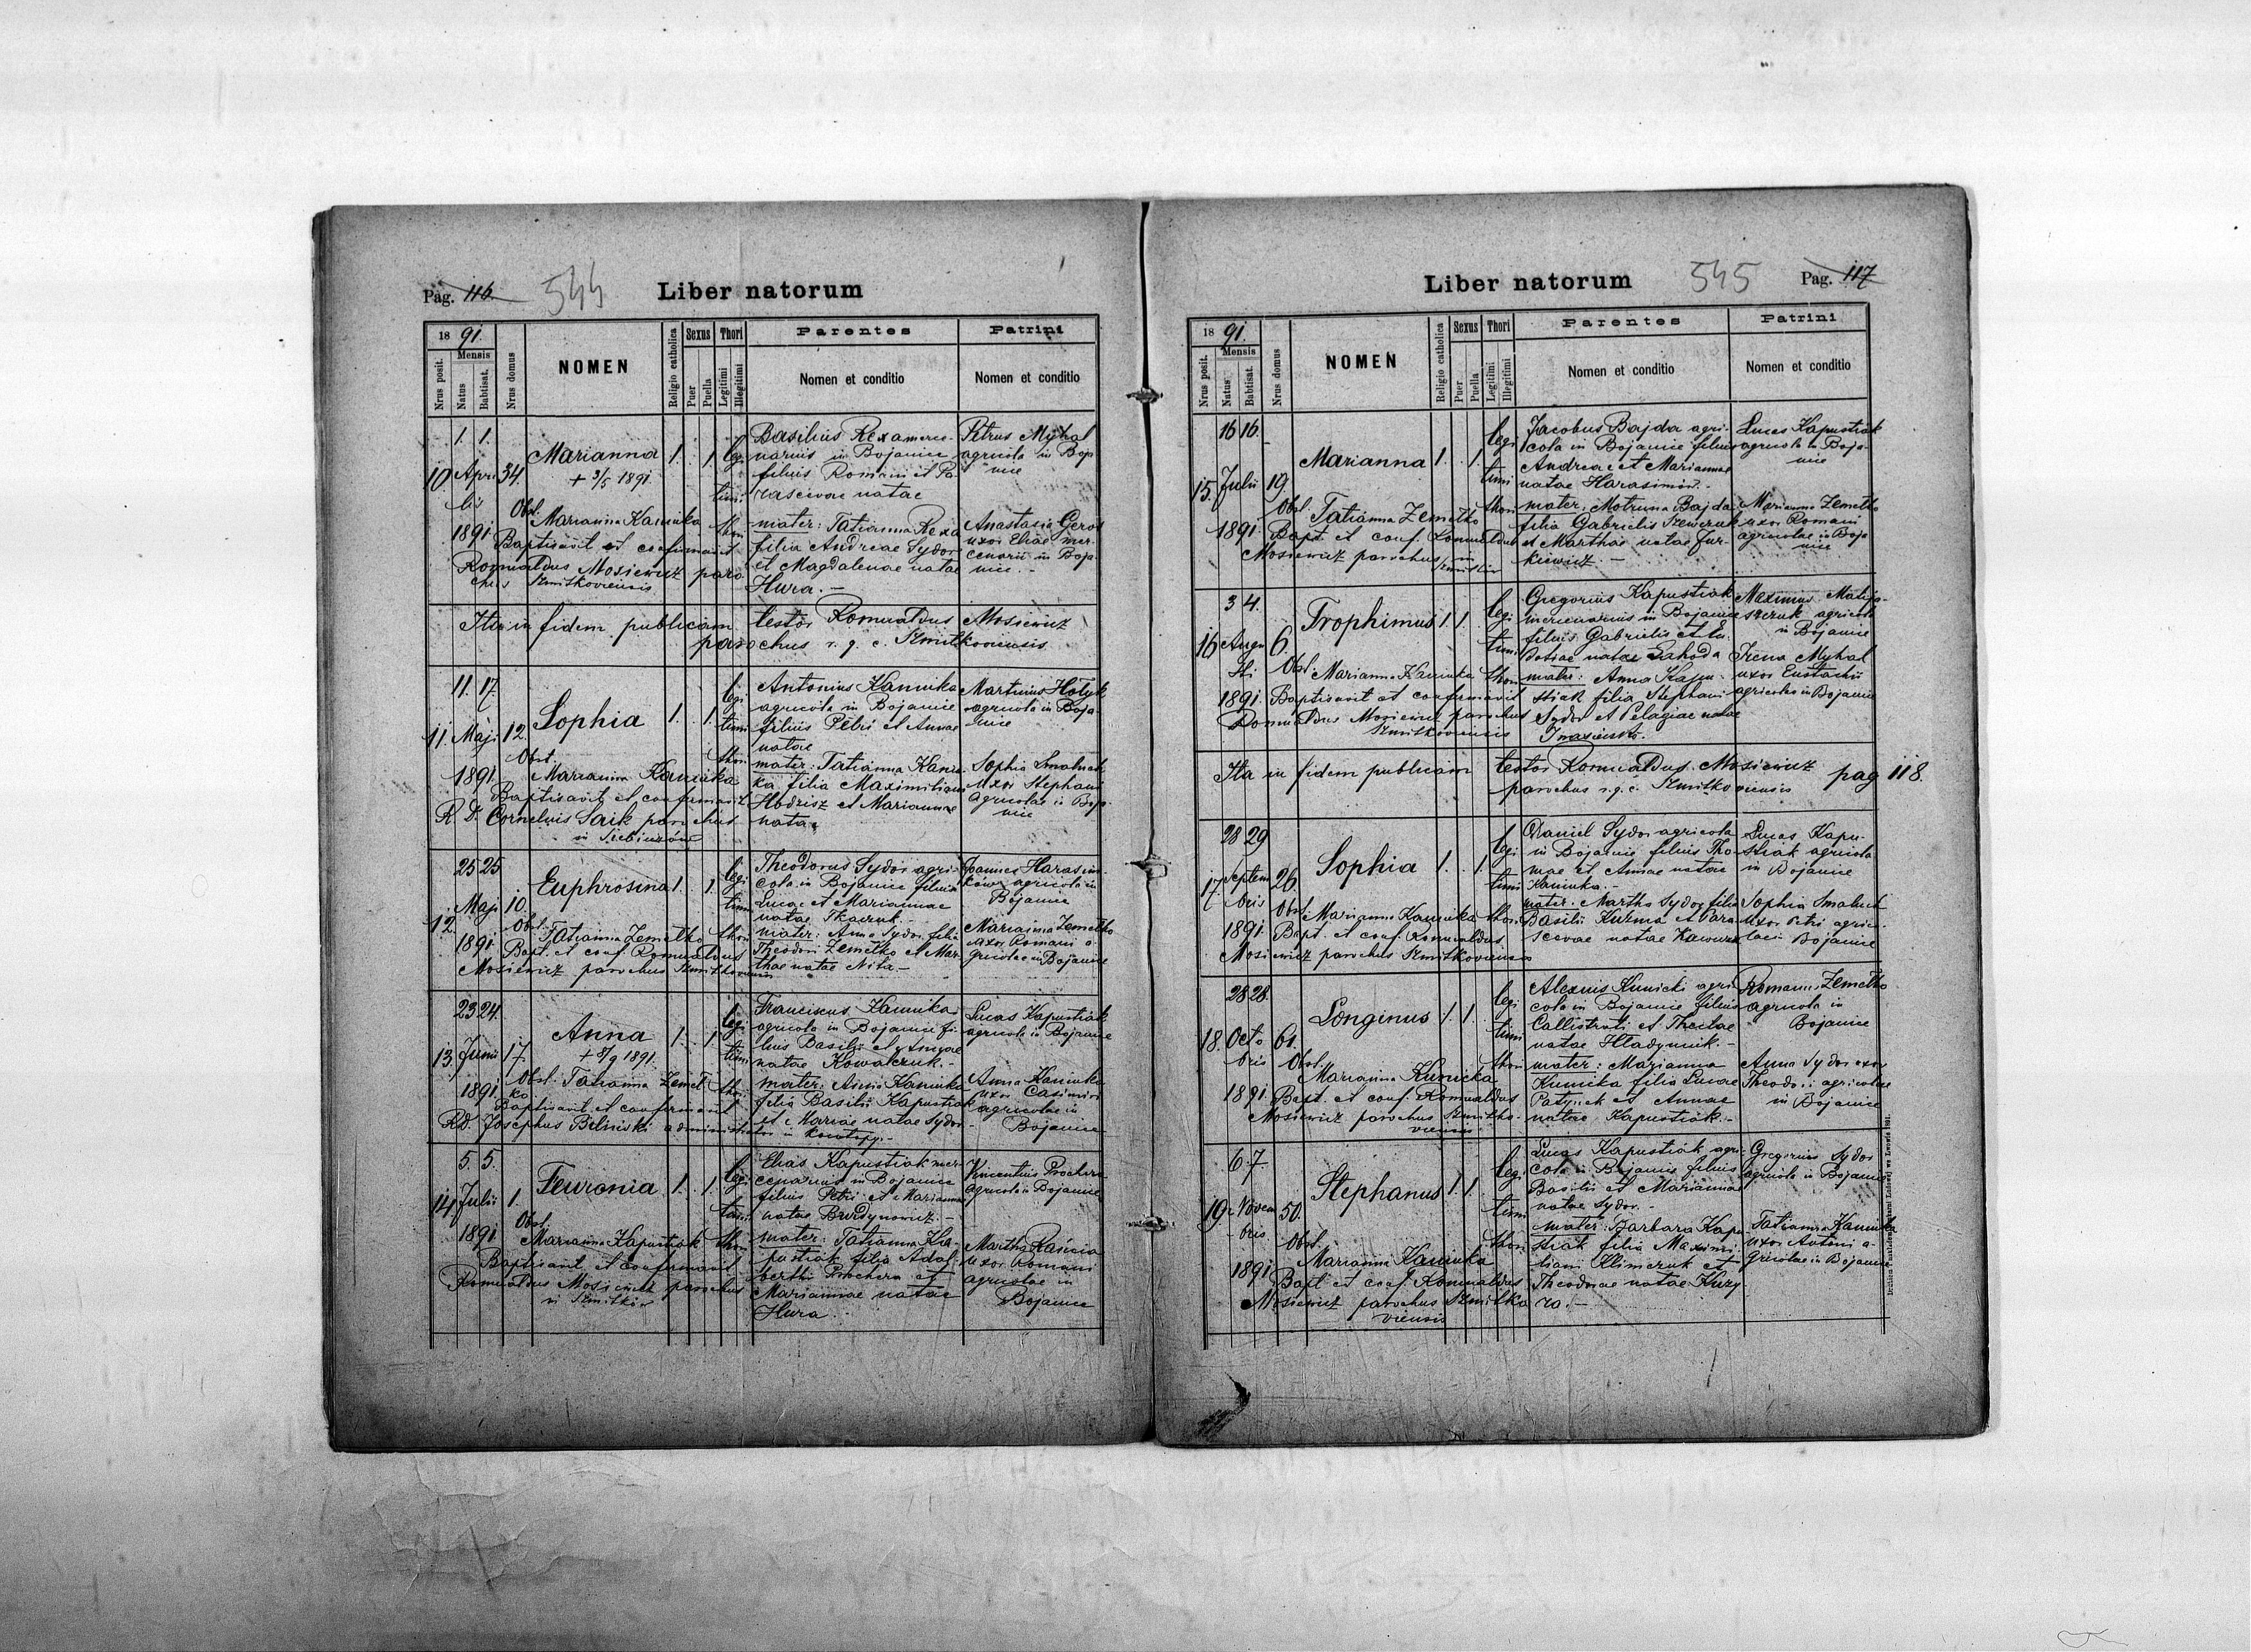 Pag. 116
544
Liber natorum
18 91.
Nrus posit.
Mensis
Natus
Babtisat.
Nrus domus
NOMEN
Religio catholica
Sexus
Puer
Puella
Thori
Legitimi
Illegitimi
Parentes
Nomen et conditio
Patrini
Nomen et conditio
10.
1. 1.
Aprilis
1891
34.
Marianna
+ 3/5 1891
1. 1.
legitimi thori
Obst. Marianna Kaminka
Baptisavit et confirmavit
Romualdus Mosiewicz parochus
Szmitkoviensis
Basilius Rexa merce-
narius in Bojanice
filius Romani et Pa-
rascevae natae
mater: Tatianna Rexa
filia Andreae Sydor
et Magdalenae natae
Hura. —
Petrus Myhal
agricola in Boja-
nice
Anastasia Geros
uxor Eliae mer-
cenarii in Boja-
nice. —
Ita in fidem publicam testor Romualdus Mosiewicz
parochus r. g. c. Szmitkoviensis
11.
11. 17.
Maji
1891.
12.
Sophia
1. 1.
legitimi thori
Obst.
Marianna Kaminka
Baptisavit et confirmavit
R. D. Cornelius Saik parochus
in
Antonius Kaminka
agricola in Bojanice
filius Petri et Annae
natae
mater: Tatianna Kamin-
ka filia Maximiliani
et Mariannae
natae
Martinus Hołyk
agricola in Boja-
nice
Sophia Smaluch
uxor Stephani
agricolae in Boja-
nice
12.
25 25
Maji
1891.
10.
Euphrosina
1. 1.
legitimi thori
Obst.
Tatianna Zemełko
Bapt. et conf. Romualdus
Mosiewicz parochus Szmitkoviensis
Theodorus Sydor agri-
cola in Bojanice filius
Lucae et Mariannae
natae Tkaczuk. —
mater: Anna Sydor filia
Theodori Zemełko et Mar-
thae natae Nita. —
Joannes Harasim-
agricola in
Bojanice
Marianna Zemełko
uxor Romani a-
gricolae in Bojanice
13.
23 24.
Junii
1891.
17.
Anna
+ 8/9 1891.
1. 1.
legitimi thori
Obst. Tatianna Zemeł-
ko
Baptisavit et confirmavit
RD. Josephus Biliński administrator in
Franciscus Kaminka
agricola in Bojanice fi-
lius Basilii et
natae Kowalczuk. —
mater: Anna Kaminka
filia Basilii Kapustiak
et Mariae natae Sydor —
Lucas Kapustiak
agricola in Bojanice
Anna Kaminka
uxor Casimiri
agricolae in
Bojanice
14.
5. 5.
Julii
1891.
1.
Feuronia
1. 1.
legitimi thori
Obst.
Marianna Kapustiak
Baptisavit et confirmavit
Romualdus Mosiewicz parochus
in Szmitków
Elias Kapustiak mer-
cenarius in Bojanice
filius Petri et Mariannae
natae Burdynowicz. —
mater: Tatianna Ka-
pustiak filia Adal-
berthi Prochera et
Mariannae natae
Hura.
Vincentius Prochera
agricola in Bojanice
Martha
uxor Romani
agricolae in
Bojanice
Liber natorum
545
Pag. 117
18 91.
Nrus posit.
Mensis
Natus
Babtisat.
Nrus domus
NOMEN
Religio catholica
Sexus
Puer
Puella
Thori
Legitimi
Illegitimi
Parentes
Nomen et conditio
Patrini
Nomen et conditio
15.
16 16.
Julii
1891.
19.
Marianna
1. 1.
legitimi thori
Obst. Tatianna Zemełko
Bapt. et conf. Romualdus
Mosiewicz parochus in
Szmitków
Jacobus Bajda agri-
cola in Bojanice filius
Andreae et Mariannae
natae Harasimów. —
mater: Motruna Bajda
filia Gabrielis Szewczuk
et Marthae natae Jur-
kiewicz. —
Lucas Kapustiak
agricola in Boja-
nice
Marianna Zemełko
uxor Romani
agricolae in Boja-
nice
16.
3 4.
Augusti
1891.
6.
Trophimus
1. 1.
legitimi thori
Obst. Marianna Kaminka
Baptisavit et confirmavit
Romualdus Mosiewicz parochus
Szmitkoviensis
Gregorius Kapustiak
mercenarius in Bojanice
filius Gabrielis et Eu-
dotiae natae Lahoda
mater: Anna Kapu-
stiak filia Stephani
Sydor et Pelagiae natae
Maximus Matija-
szczuk agricola
in Bojanice
Irena Myhal
uxor Eustachii
agricolae in Bojanice
Ita in fidem publicam testor Romualdus Mosiewicz pag 118.
parochus r. g. c. Szmitkoviensis
17.
28 29
Septembris
1891.
26.
Sophia
1. 1.
legitimi thori
Obst. Marianna Kaminka
Bapt. et conf. Romualdus
Mosiewicz parochus Szmitkoviensis
Daniel Sydor agricola
in Bojanice filius Tho-
mae et Annae natae
Kaminka. —
mater: Martha Sydor filia
Basilii Kuzma et Para-
scevae natae Kawurza
Lucas Kapu-
stiak agricola
in Bojanice
Sophia Smaluch
uxor Petri agrico-
lae in Bojanice
18.
28 28.
Octobris
1891.
61.
Longinus
1. 1.
legitimi thori
Obst.
Marianna Kunicka
Bapt. et conf. Romualdus
Mosiewicz parochus Szmitko-
viensis
Alexius Kunicki agri-
cola in Bojanice filius
Callistrati et Theclae
natae Hładyniuk. —
mater: Marianna
Kunicka filia Lucae
et Annae
natae Kapustiak. —
Romanus Zemełko
agricola in
Bojanice
Anna Sydor uxor
Theodori agricolae
in Bojanice
19.
6 7.
Novembris
1891
50.
Stephanus
1. 1.
legitimi thori
Obst.
Marianna Kaminka
Bapt. et conf. Romualdus
Mosiewicz parochus Szmitko
viensis
Lucas Kapustiak agri-
cola in Bojanice filius
Basilii et Mariannae
natae Sydor. —
mater: Barbara Kapu-
stiak filia Maximi-
liani Klimczuk et
Theodorae natae Kury-
ło. —
Gregorius Sydor
agricola in Bojanice
Tatianna Kaminka
uxor Antoni a-
gricolae in Bojanice